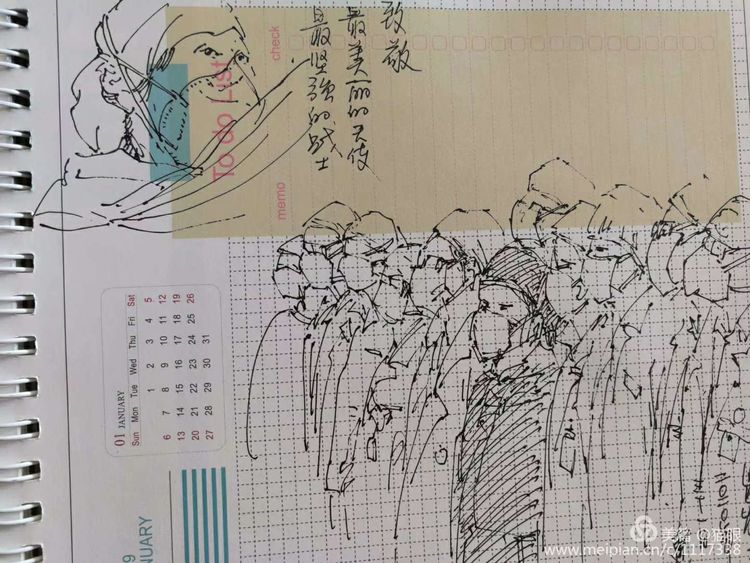 致敬
最美丽的天使
最坚强的战士
check
To do List
memo
01 JANUARY
Sun Mon Tue Wed Thu Fri Sat
1 2 3 4 5
6 7 8 9 10 11 12
13 14 15 16 17 18 19
20 21 22 23 24 25 26
27 28 29 30 31
9
NUARY
美篇 @猫眼
www.meipian.cn/c/1117338